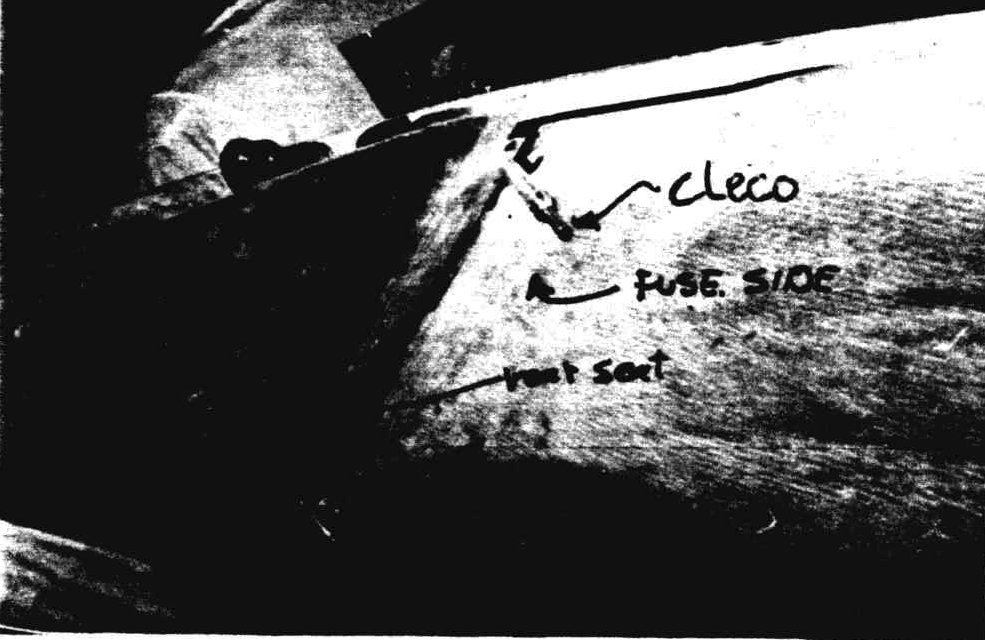 cleco
FUSE. SIDE
rear seat